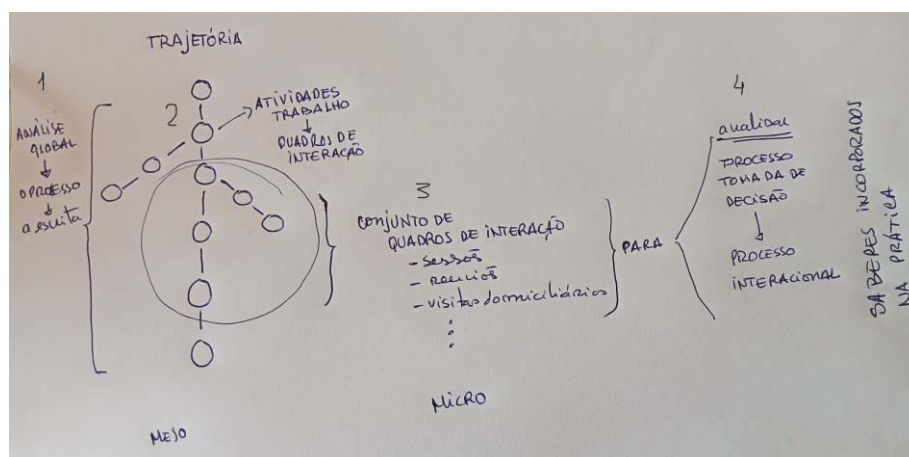 TRAJETÓRIA
1
ANÁLISE
GLOBAL
O PROCESSO
a escrita
2
ATIVIDADES
TRABALHO
QUADROS DE
INTERAÇÃO
MESO
3
CONJUNTO DE
QUADROS DE INTERAÇÃO
- sessões
- reuniões
- visitas domiciliários
MICRO
PARA
4
analisar
PROCESSO
TOMADA DE
DECISÃO
PROCESSO
INTERACIONAL
SABERES INCORPORADOS
NA PRÁTICA